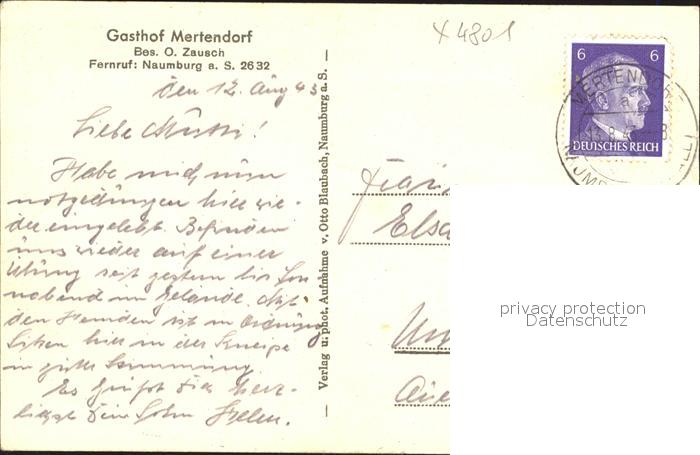 Gasthof Mertendorf
Bes. O. Zausch
Fernruf: Naumburg a. S. 2632
X 4801
den 12. Aug 43
Liebe Mutti!
Habe mich nun
notgedrungen hier wie-
der eingelebt. Befinden
uns wieder auf einer
Übung seit gestern bis Son
nabend im Gelände. Mit
den Hemden ist in Ordnung
Sitzen hier in der Kneipe
in guter Stimmung.
Es grüßt Dich herz-
lichst Dein Sohn
Verlag u. phot. Aufnahme v. Otto Blaubach, Naumburg a. S.
6 6
DEUTSCHES REICH
MERTENDORF
a
Elsa
privacy protection
Datenschutz